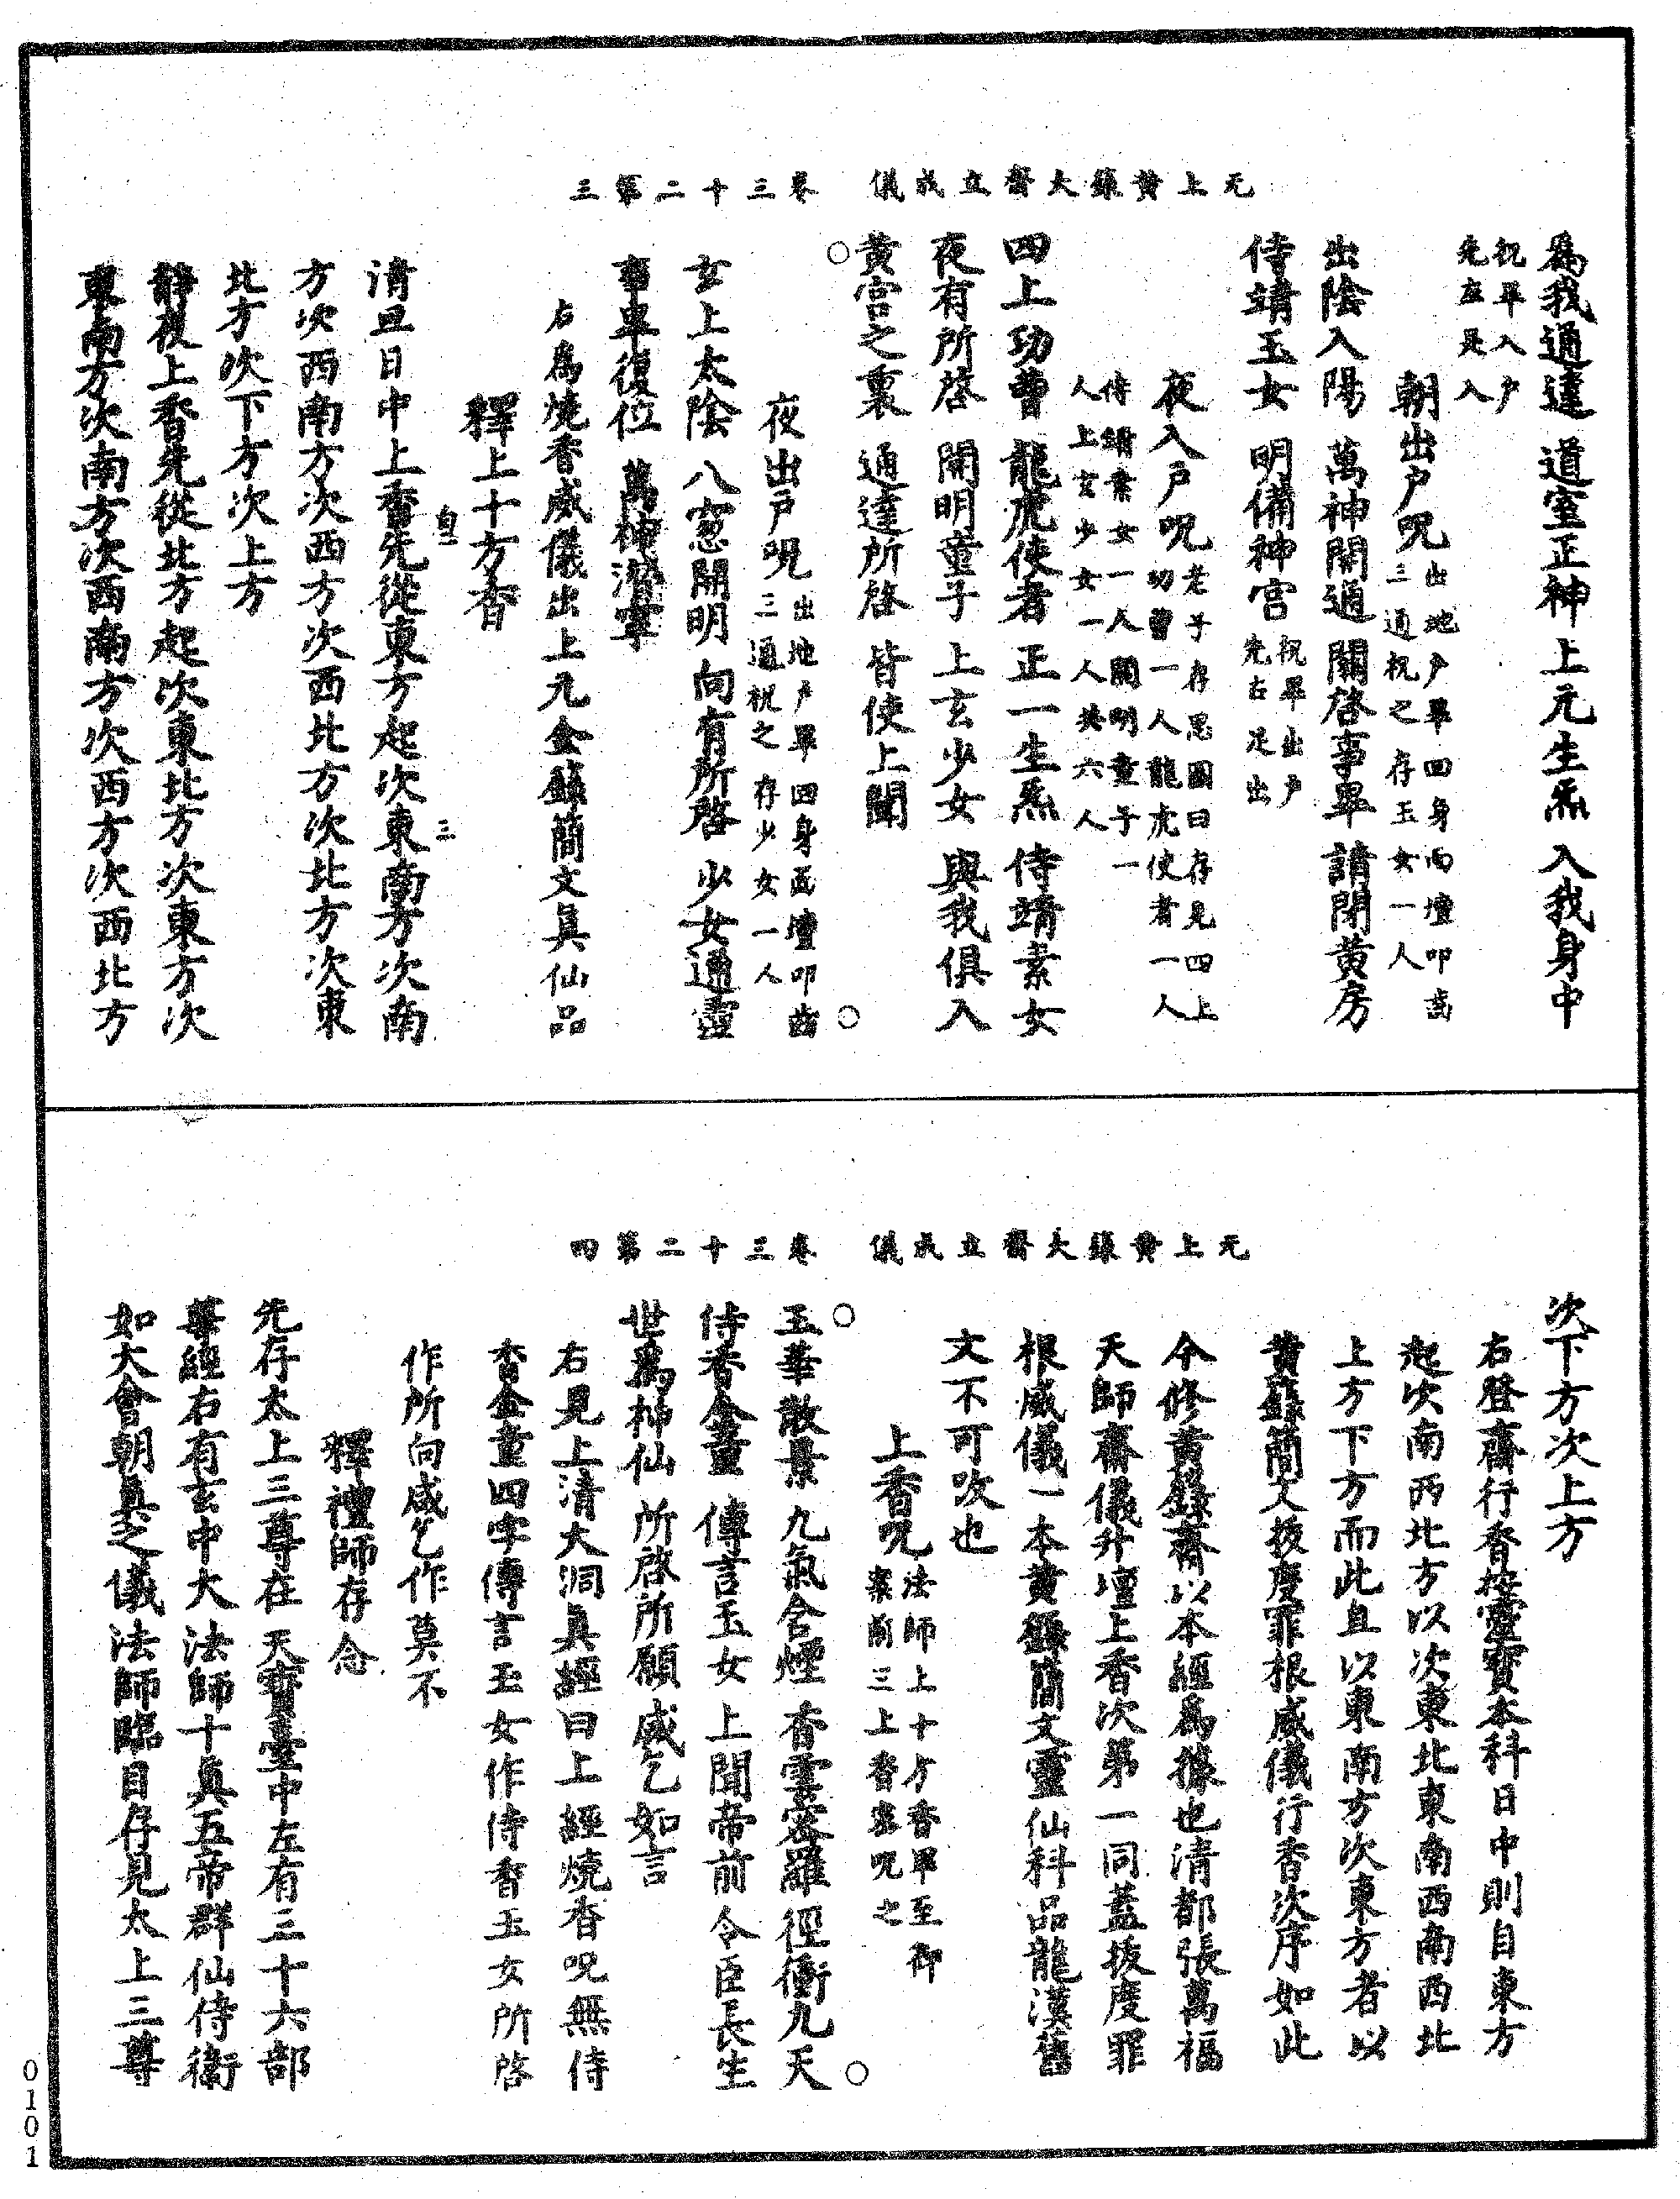 无上黃籙大齋立成儀　卷三十二第三
爲我通達　道室正神　上元生炁　入我身中
祝畢入户
先左足入
朝出户呪
出地户畢回身向壇叩齒
三通祝之存玉女一人
出陰入陽　萬神開通　關啓事畢　請閉黃房
侍靖玉女　明備神宮
祝畢出户
先右足出
夜入户呪
老子存思圖曰存見四上
功曹一人龍虎使者一人
侍靖素女一人開明童子一
人上玄少女一人共六人
四上功曹　龍虎使者　正一生炁　侍靖素女
夜有所啓　開明童子　上玄少女　與我俱入
黃宮之裏　通達所啓　皆使上聞
夜出户呪
出地户畢回身面壇叩齒
三通祝之存少女一人
女上太陰　八窓開明　向有所啓　少女通靈
事畢復位　萬神肅寧
右爲燒香威儀出上元金籙簡文眞仙品
釋上十方香
清旦日中上香先從東方起次東南方次南
方次西南方次西方次西北方次北方次東
北方次下方次上方
靜夜上香先從北方起次東北方次東方次
東南方次南方次西南方次西方次西北方
无上黃籙大齋立成儀　卷三十二第四
次下方次上方
右登齋行香按靈寶本科日中則自東方
起次南西北方以次東北東南西南西北
上方下方而此且以東南方次東方者以
黃籙簡文拔度罪根威儀行香次序如此
今修黃籙齋以本經爲據也清都張萬福
天師齋儀升壇上香次第一同蓋拔度罪
根威儀一本黃籙簡文靈仙科品龍漢舊
文不可改也
上香呪
法師上十方香畢至御
案前三上香密呪之
玉華散景　九氣含煙　香雲密羅　徑衝九天
侍香金童　傳言玉女　上聞帝前　令臣長生
世爲神仙　所啓所願　咸乞如言
右見上清大洞眞經曰上經燒香呪無侍
香金童四字傳言玉女作侍香玉女所啓
作所向咸乞作莫不
釋禮師存念
先存太上三尊在　天寶臺中左有三十六部
尊經右有玄中大法師十眞五帝群仙侍衛
如大會朝眞之儀法師臨目存見太上三尊
0101